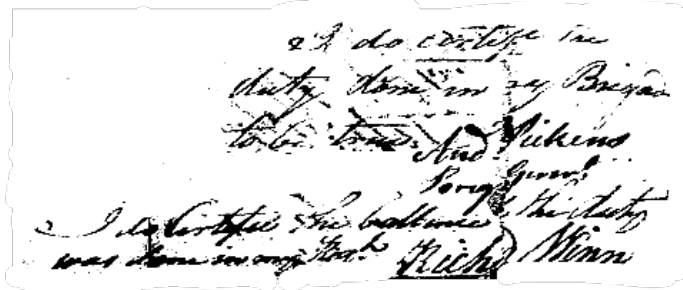 I do certify the
duty done in my Brigade
to be true. And. Pickens
Brig. Genrl.
I do Certifie the ballance of this duty
was done in my Regt. Richd Winn